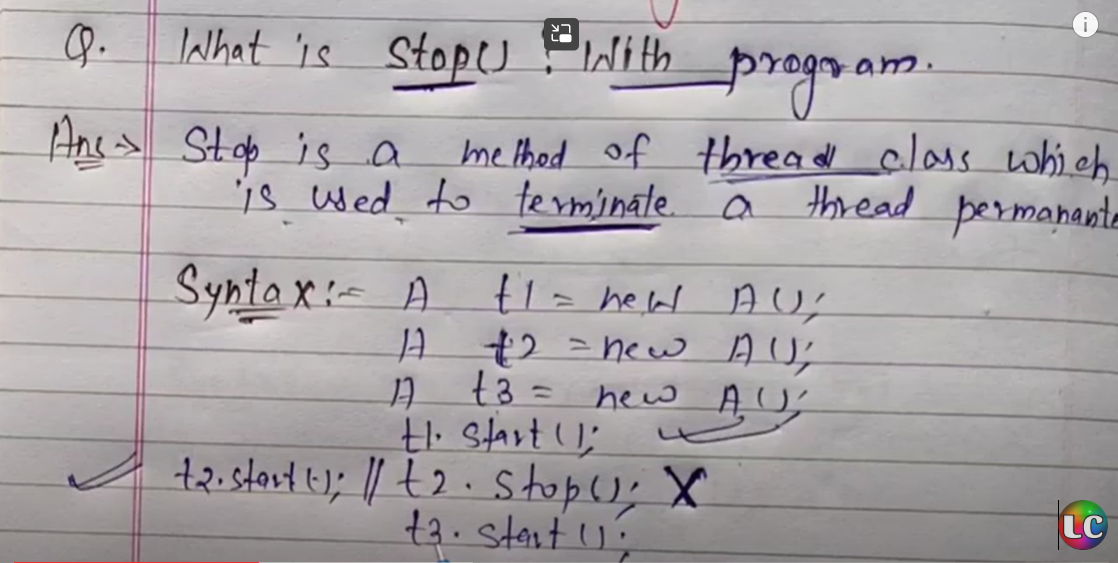 Q. What is Stop() ? With program.
Ans → Stop is a method of thread class which
is used to terminate a thread permanante
Syntax :- A t1 = new A();
A t2 = new A();
A t3 = new A();
t1. Start();
t2.start(); // t2. Stop(); X
t3. Start();
LC